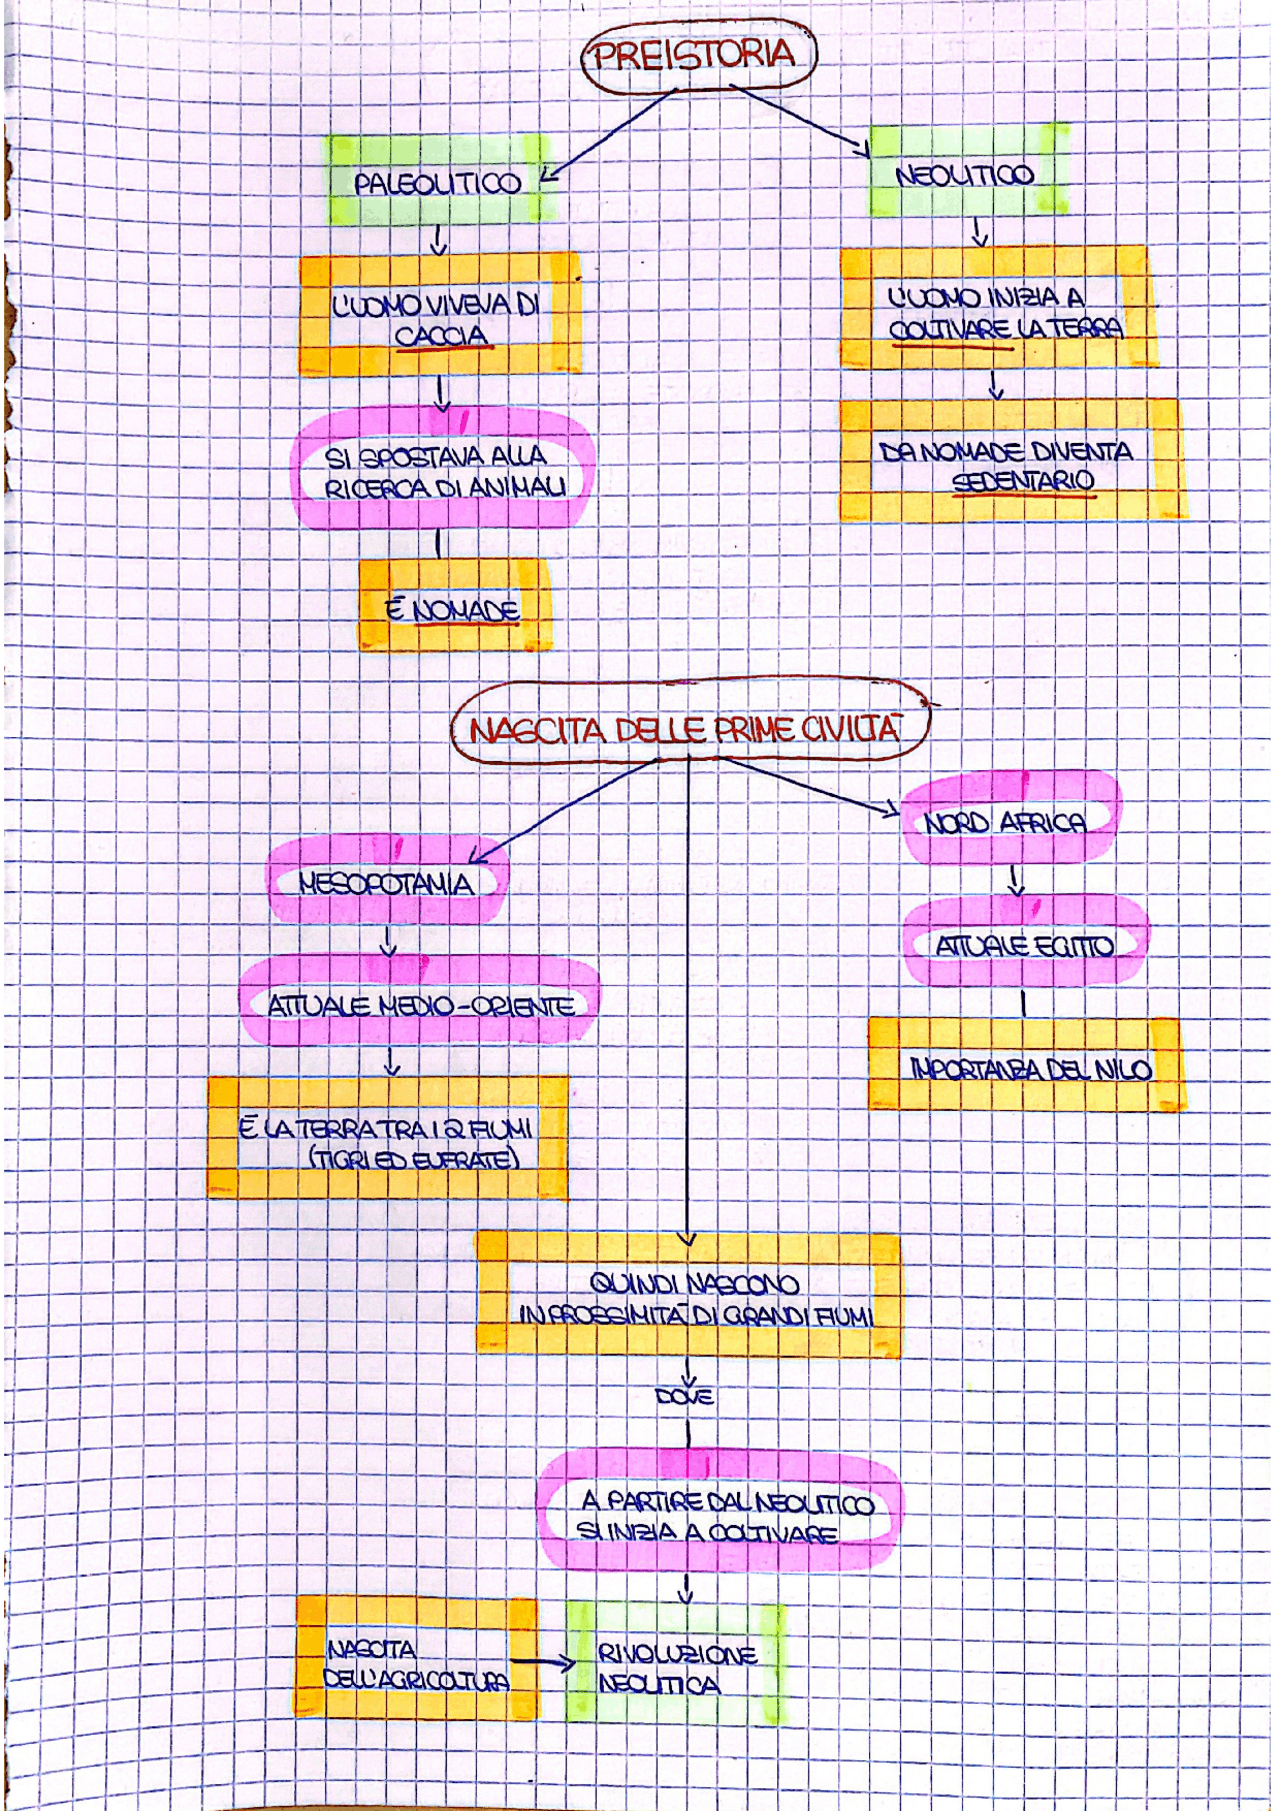 PREISTORIA
PALEOLITICO
NEOLITICO
L'UOMO VIVEVA DI
CACCIA
L'UOMO INIZIA A
COLTIVARE LA TERRA
SI SPOSTAVA ALLA
RICERCA DI ANIMALI
DA NOMADE DIVENTA
SEDENTARIO
È NOMADE
NASCITA DELLE PRIME CIVILTÀ
NORD AFRICA
MESOPOTAMIA
ATTUALE EGITTO
ATTUALE MEDIO-ORIENTE
IMPORTANZA DEL NILO
È LA TERRA TRA I 2 FIUMI
(TIGRI ED EUFRATE)
QUINDI NASCONO
IN PROSSIMITÀ DI GRANDI FIUMI
DOVE
A PARTIRE DAL NEOLITICO
SI INIZIA A COLTIVARE
NASCITA
DELL'AGRICOLTURA
RIVOLUZIONE
NEOLITICA